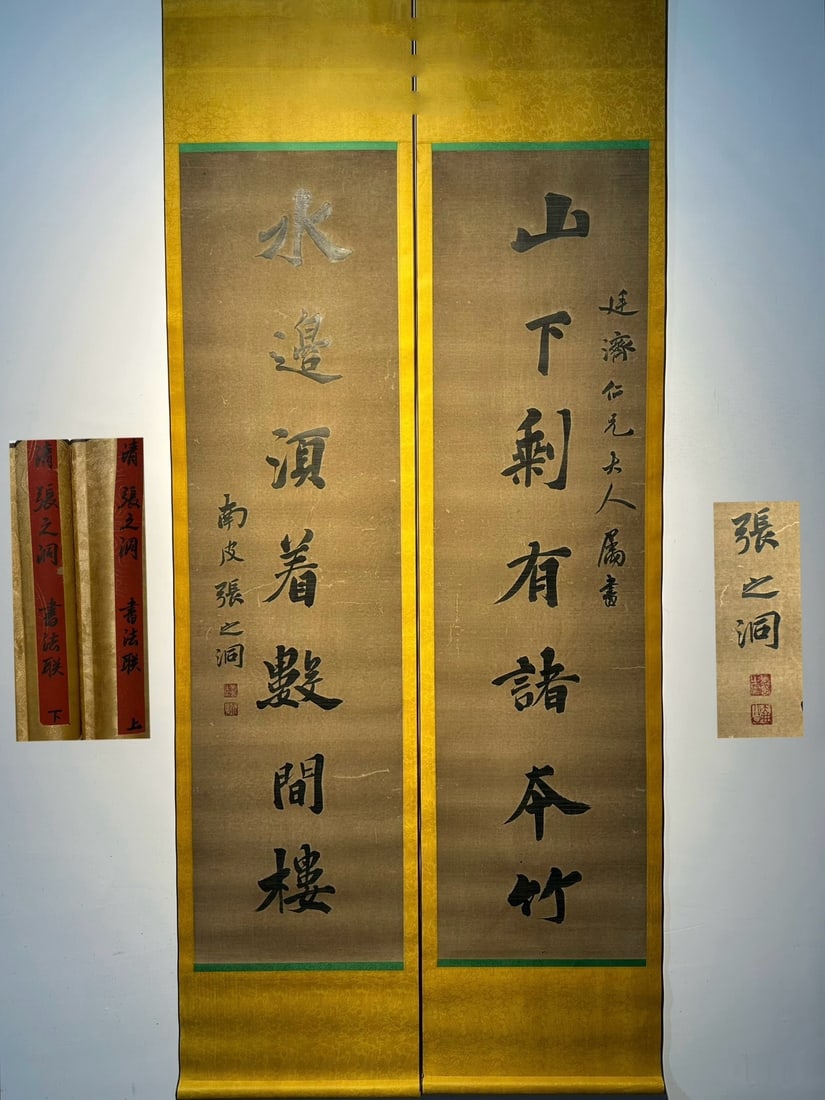 山下剩有諸本竹
廷濟仁兄大人屬書
水邊湏着數間樓
南皮張之洞
清 張之洞 書法联 上
清 張之洞 書法联 下
張之洞